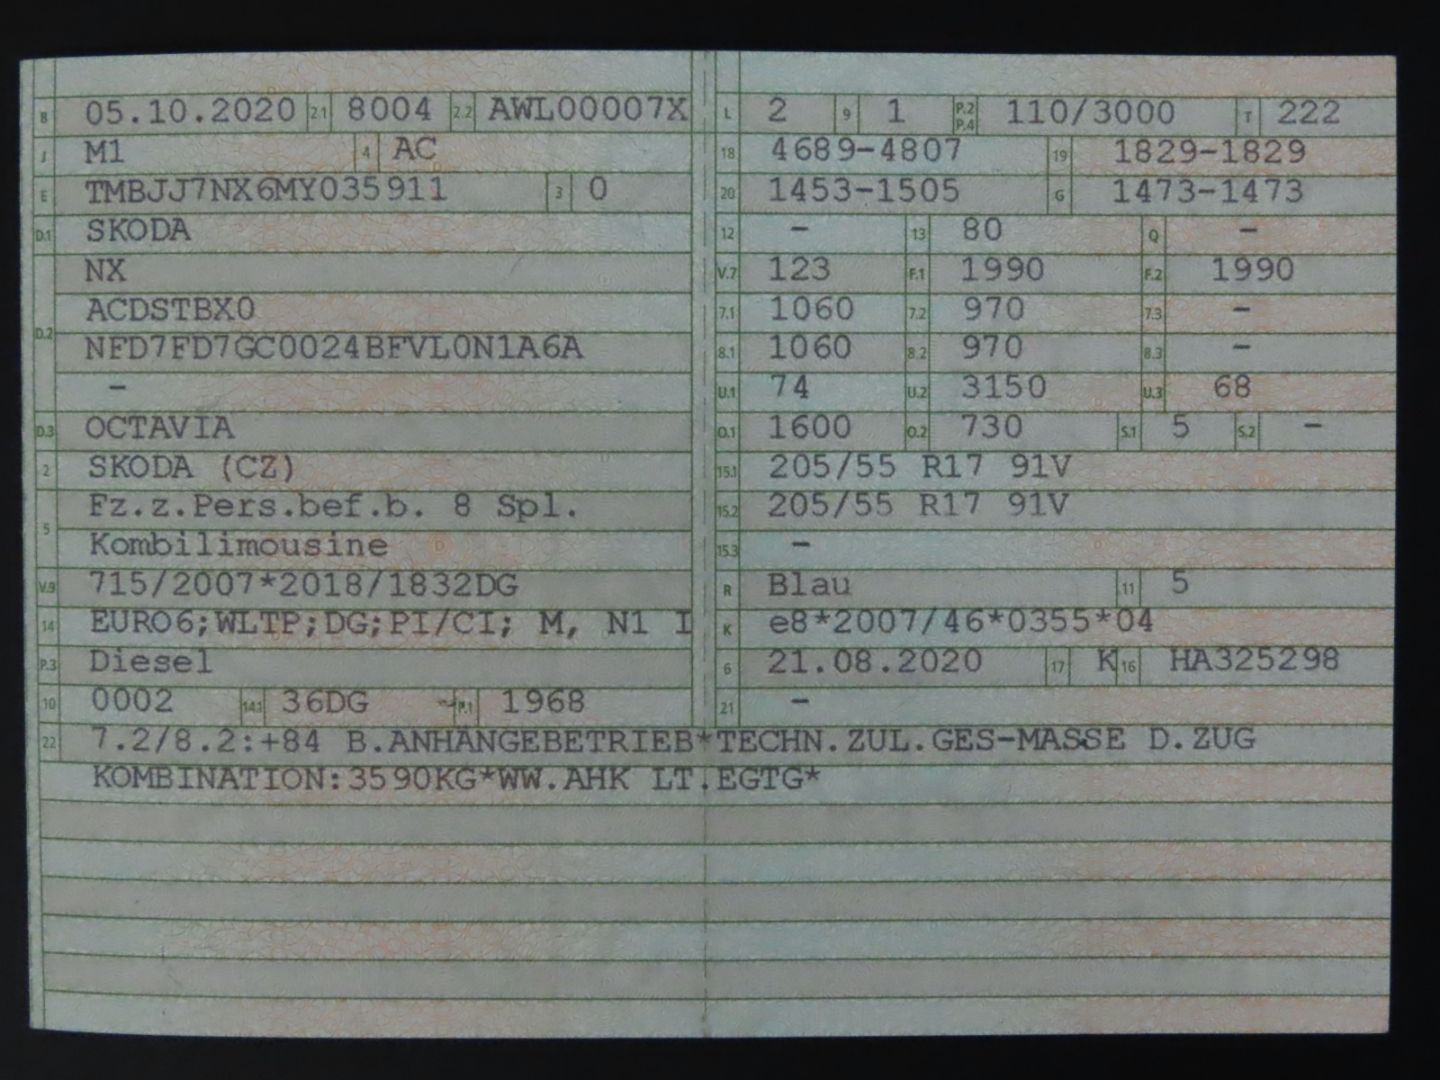 B 05.10.2020 2.1 8004 2.2 AWL00007X
J M1 4 AC
E TMBJJ7NX6MY035911 3 0
D.1 SKODA
NX
ACDSTBX0
D.2 NFD7FD7GC0024BFVL0N1A6A
–
D.3 OCTAVIA
2 SKODA (CZ)
Fz.z.Pers.bef.b. 8 Spl.
5 Kombilimousine
V.9 715/2007*2018/1832DG
14 EURO6;WLTP;DG;PI/CI; M, N1 I
P.3 Diesel
10 0002 14.1 36DG P.1 1968
L 2 9 1 P.2 P.4 110/3000 T 222
18 4689-4807 19 1829-1829
20 1453-1505 G 1473-1473
12 – 13 80 Q –
V.7 123 F.1 1990 F.2 1990
7.1 1060 7.2 970 7.3 –
8.1 1060 8.2 970 8.3 –
U.1 74 U.2 3150 U.3 68
O.1 1600 O.2 730 S.1 5 S.2 –
15.1 205/55 R17 91V
15.2 205/55 R17 91V
15.3 –
R Blau 11 5
K e8*2007/46*0355*04
6 21.08.2020 17 K 16 HA325298
21 –
22 7.2/8.2:+84 B.ANHÄNGEBETRIEB*TECHN.ZUL.GES-MASSE D.ZUG
KOMBINATION:3590KG*WW.AHK LT.EGTG*